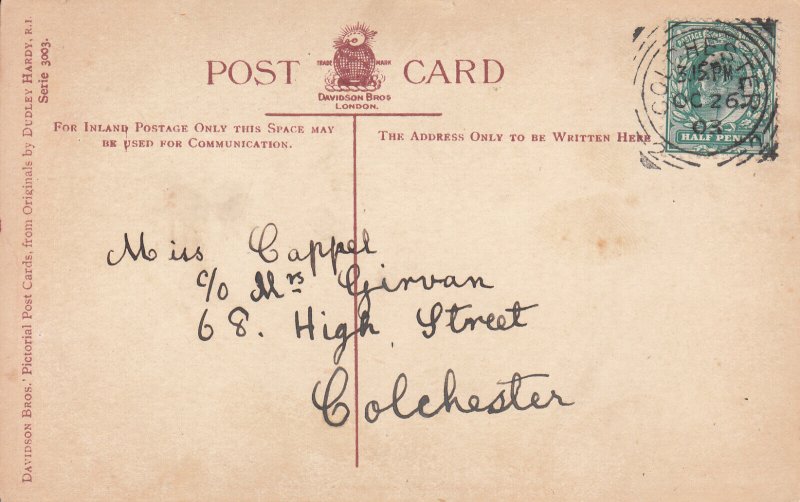 DAVIDSON BROS.' Pictorial Post Cards, from Originals by DUDLEY HARDY, R.I.
Serie 3003.
POST CARD
TRADE MARK
DAVIDSON BROS
LONDON.
FOR INLAND POSTAGE ONLY THIS SPACE MAY
BE USED FOR COMMUNICATION.
THE ADDRESS ONLY TO BE WRITTEN HERE
COLCHESTER
3.15 PM
OC 26
03
HALF PEN
Miss Cappel
c/o Mrs Girvan
68. High Street
Colchester